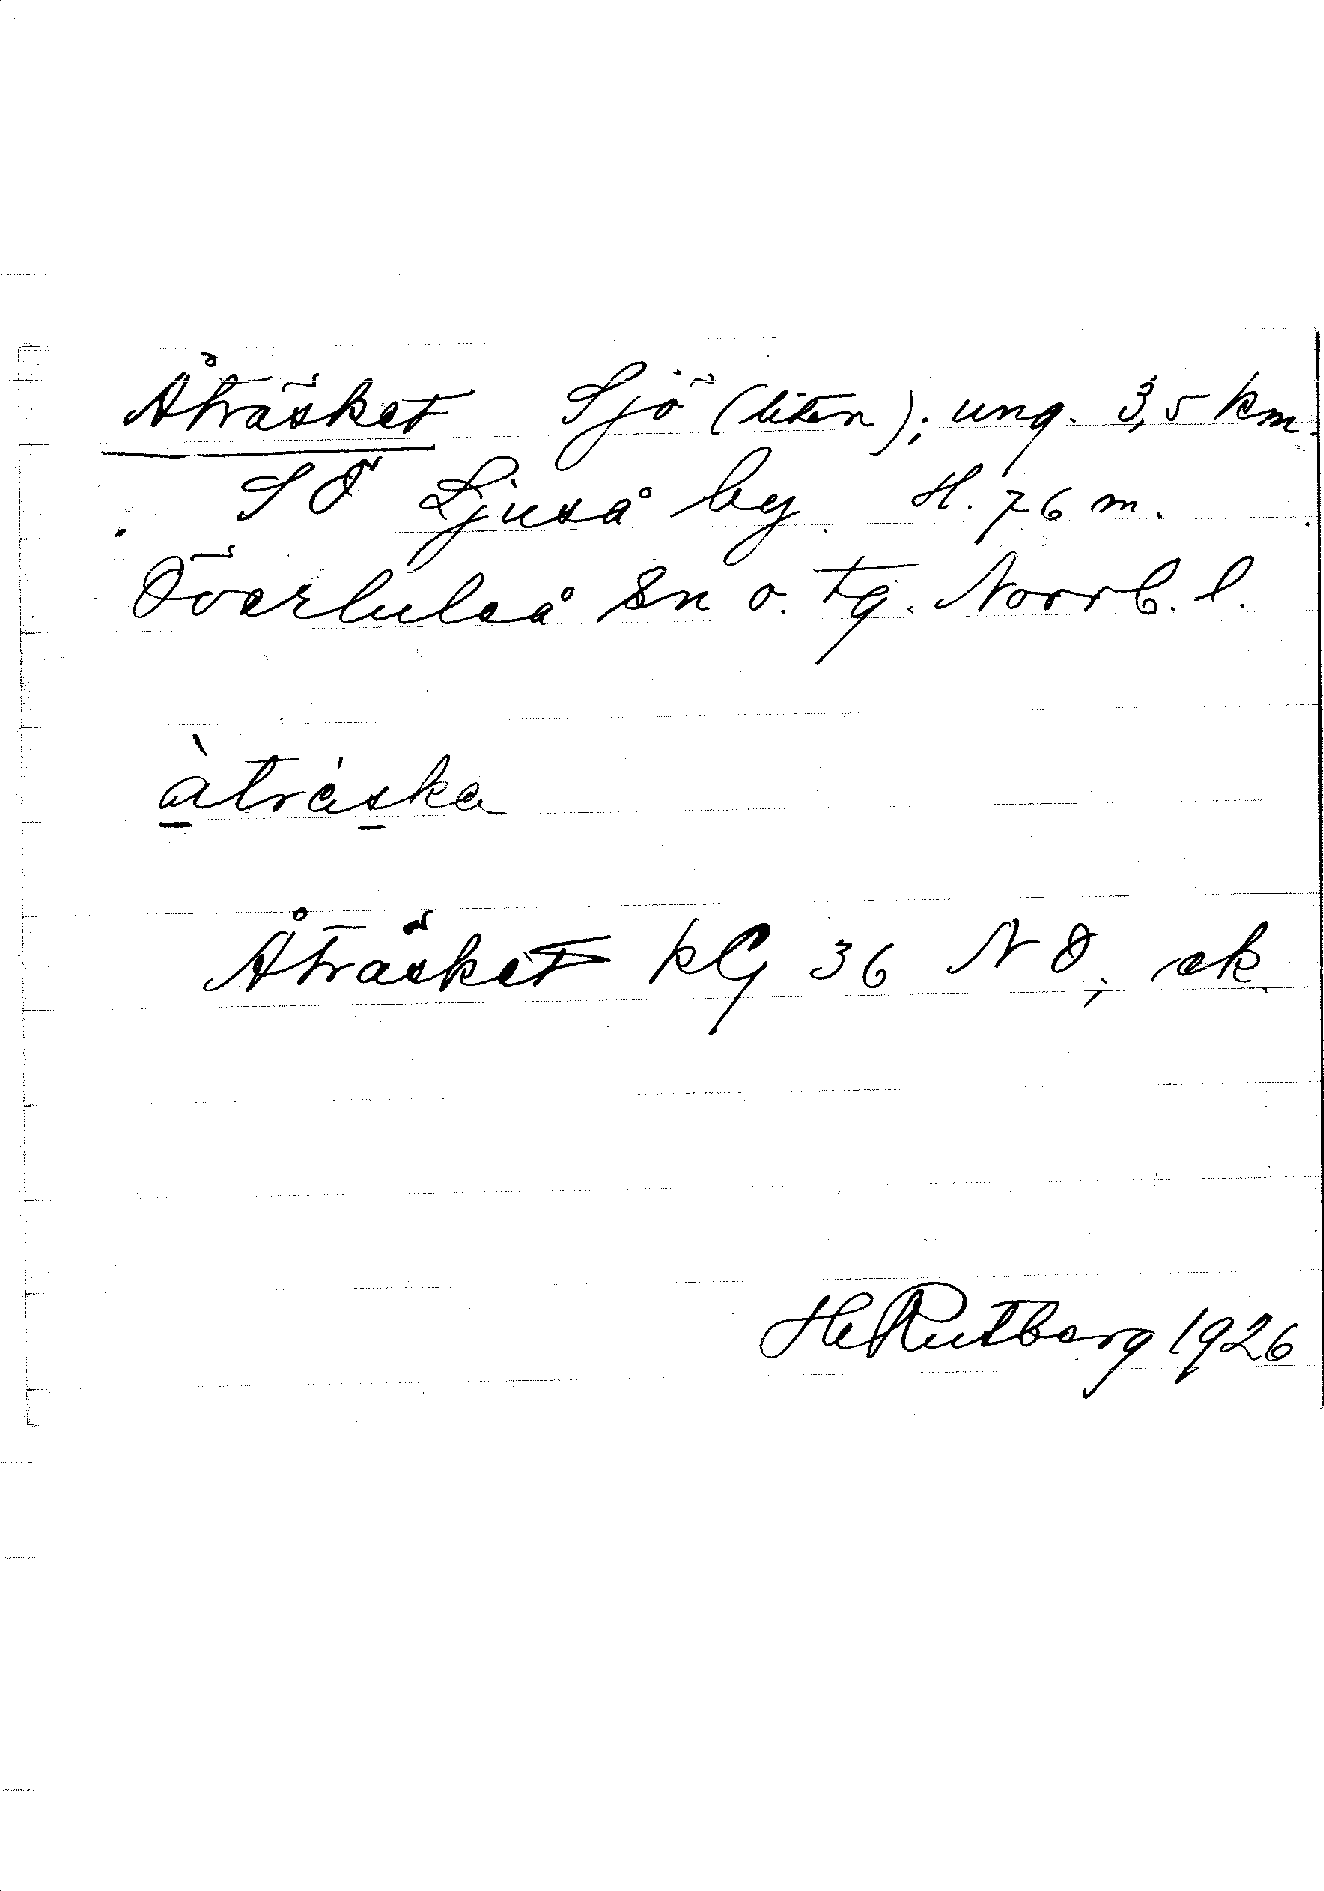 Åträsket Sjö (liten); ung. 3,5 km.
SÖ Ljuså by. H. 76 m.
Överluleå sn o. tg. Norrb. l.
àtráska
Åträsket kG 36 NO, ek.
H Rutberg 1926